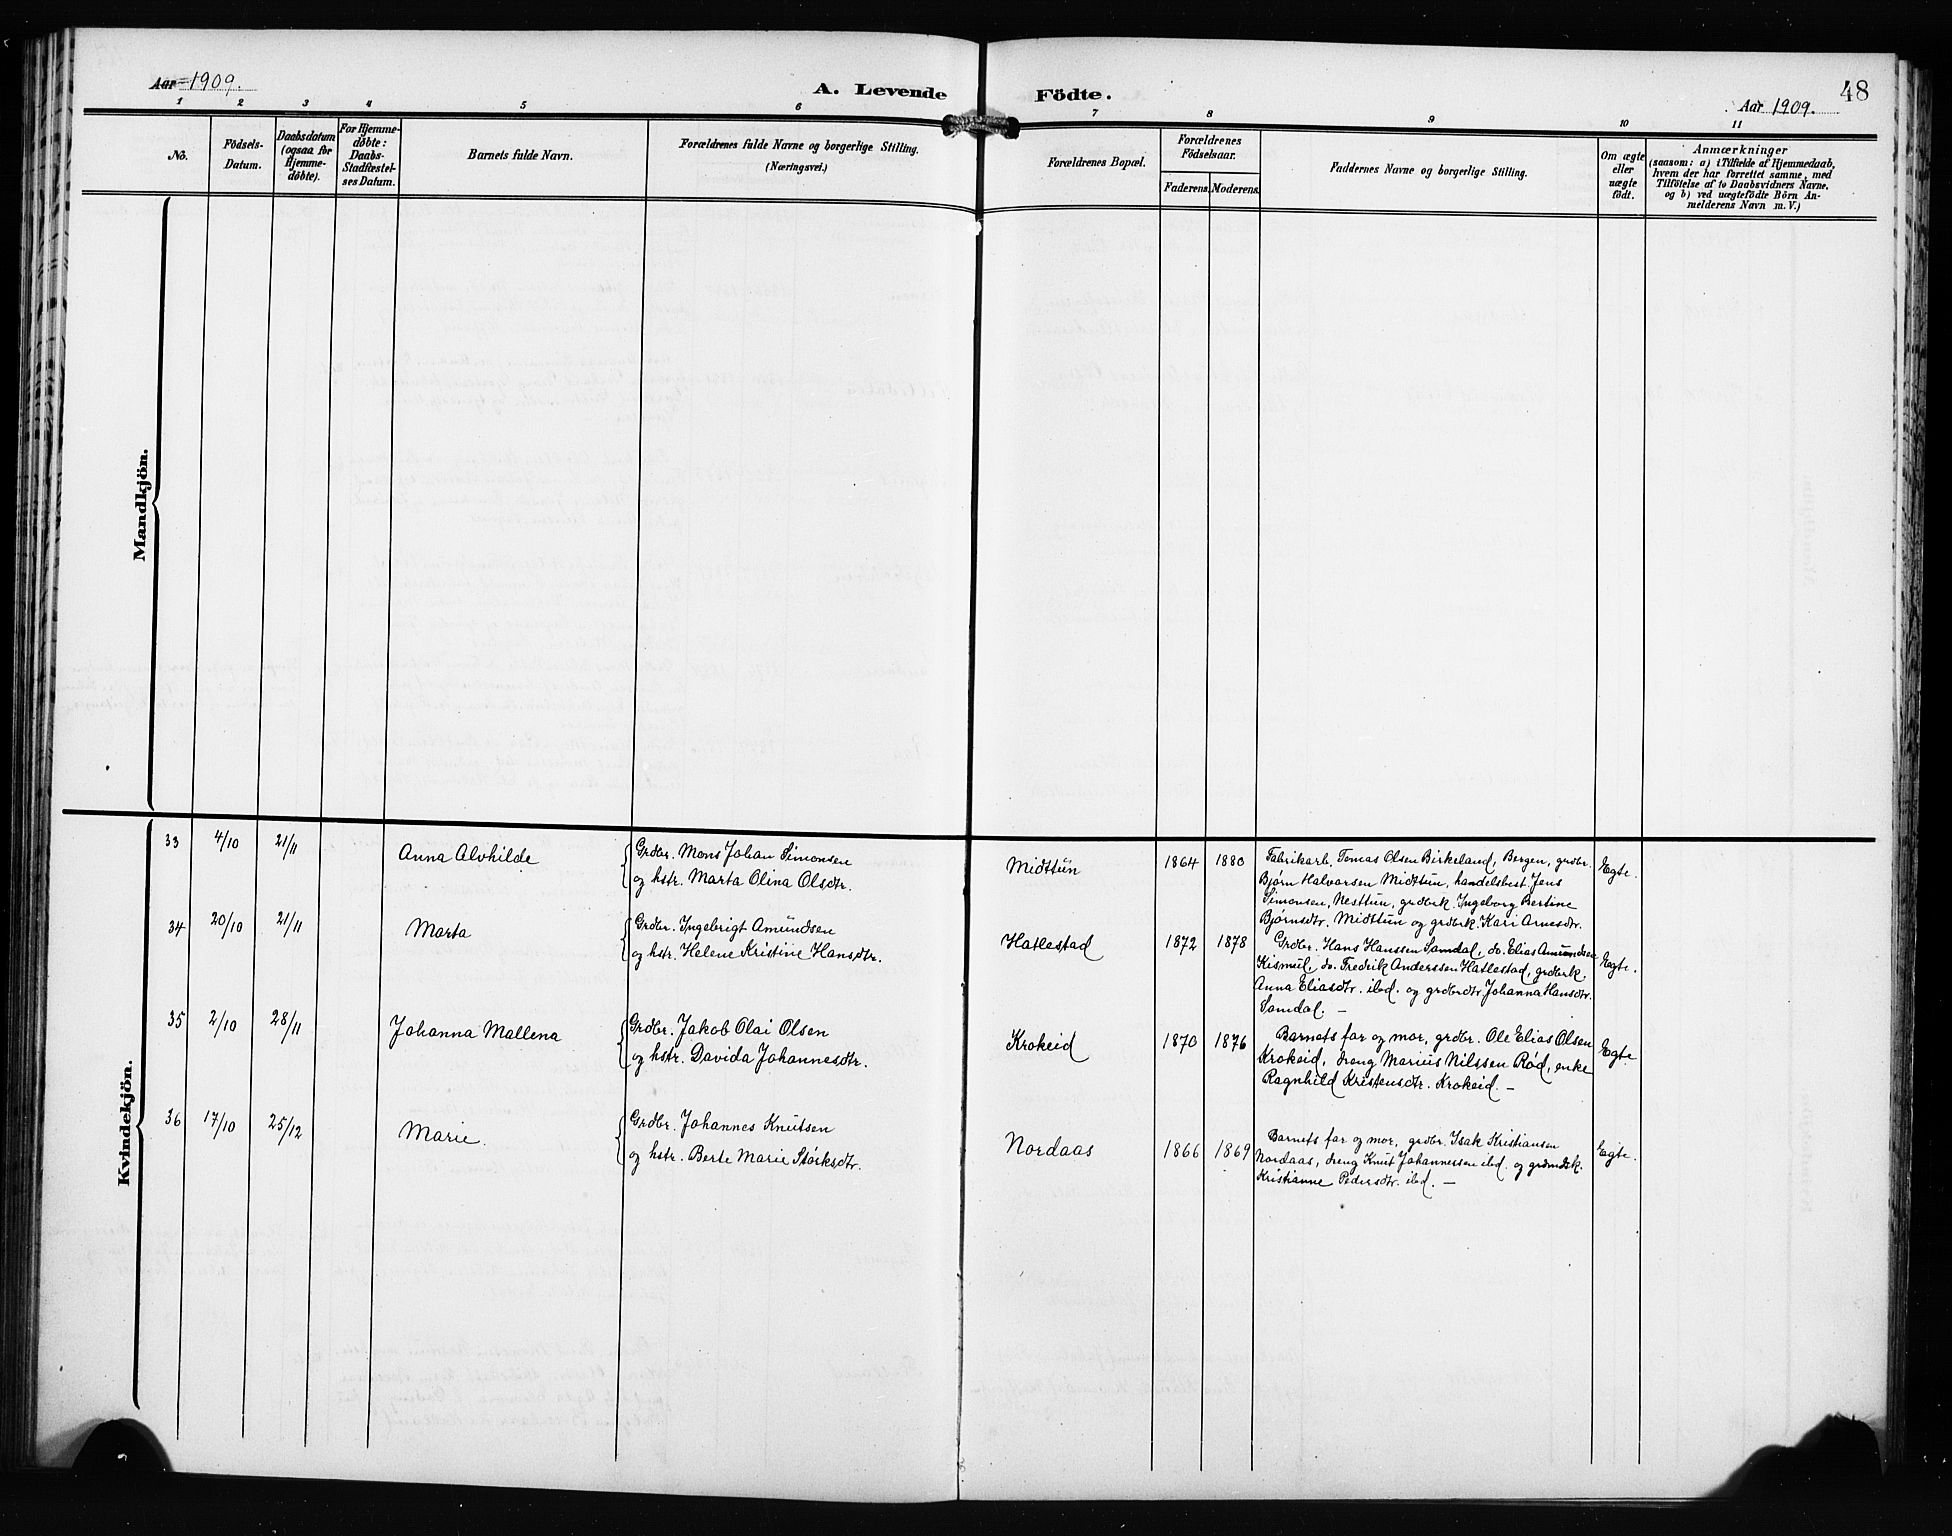 Aar 1909.
A. Levende Födte.
48
Aar 1909.
1 2 3 4 5 6 7 8 9 10 11
No.
Födsels-
Datum.
Daabsdatum
(ogsaa for
Hjemme-
döbte).
For Hjemme-
döbte:
Daabs-
Stadfæstel-
ses Datum.
Barnets fulde Navn.
Forældrenes fulde Navne og borgerlige Stilling.
(Næringsvei.)
Forældrenes Bopæl.
Forældrenes
Födselsaar.
Faderens. Moderens.
Faddernes Navne og borgerlige Stilling.
Om ægte
eller
uægte
födt.
Anmærkninger
(saasom: a) i Tilfælde af Hjemmedaab,
hvem der har forrettet samme, med
Tilföielse af to Daabsvidners Navne,
og b) ved uægtefödte Börn An-
melderens Navn m. V.)
Mandkjön.
Kvindekjön.
33 4/10 21/11 Anna Alvhilde
Grdbr. Mons Johan Simonsen
og hstr. Marta Olina Olsdtr.
Midttun 1864 1880
Fabrikarb. Tomas Olsen Birkeland, Bergen, grdbr.
Bjørn Halvorsen Midttun, handelsbest. Jens
Simonsen, Nesttun, grdbrk. Ingeborg Bertine
Bjørnsdtr. Midttun og grdbrk. Kari Arnesdtr.
Egte.
34 20/10 21/11 Marta
Grdbr. Ingebrigt Amundsen
og hstr. Helene Kristine Hansdtr.
Hatlestad 1872 1878
Grdbr. Hans Hanssen Samdal, do. Elias Amundsen
Kismul, do. Fredrik Anderssen Hatlestad, grdbrk.
Anna Eliasdtr. ibd. og grdbrdtr. Johanna Hansdtr.
Samdal. —
Egte.
35 2/10 28/11 Johanna Mallena
Grdbr. Jakob Olai Olsen
og hstr. Davida Johannesdtr.
Krokeid 1870 1876
Barnets far og mor, grdbr. Ole Elias Olsen
Krokeid, dreng Marius Nilssen Rød, enke
Ragnhild Kristensdtr. Krokeid. —
Egte.
36 17/10 25/12 Marie.
Grdbr. Johannes Knutsen
og hstr. Berte Marie Størksdtr.
Nordaas 1866 1869
Barnets far og mor, grdbr. Isak Kristiansen
Nordaas, dreng Knut Johannessen ibd. og
Kristianne Pedersdtr. ibd. —
Egte.